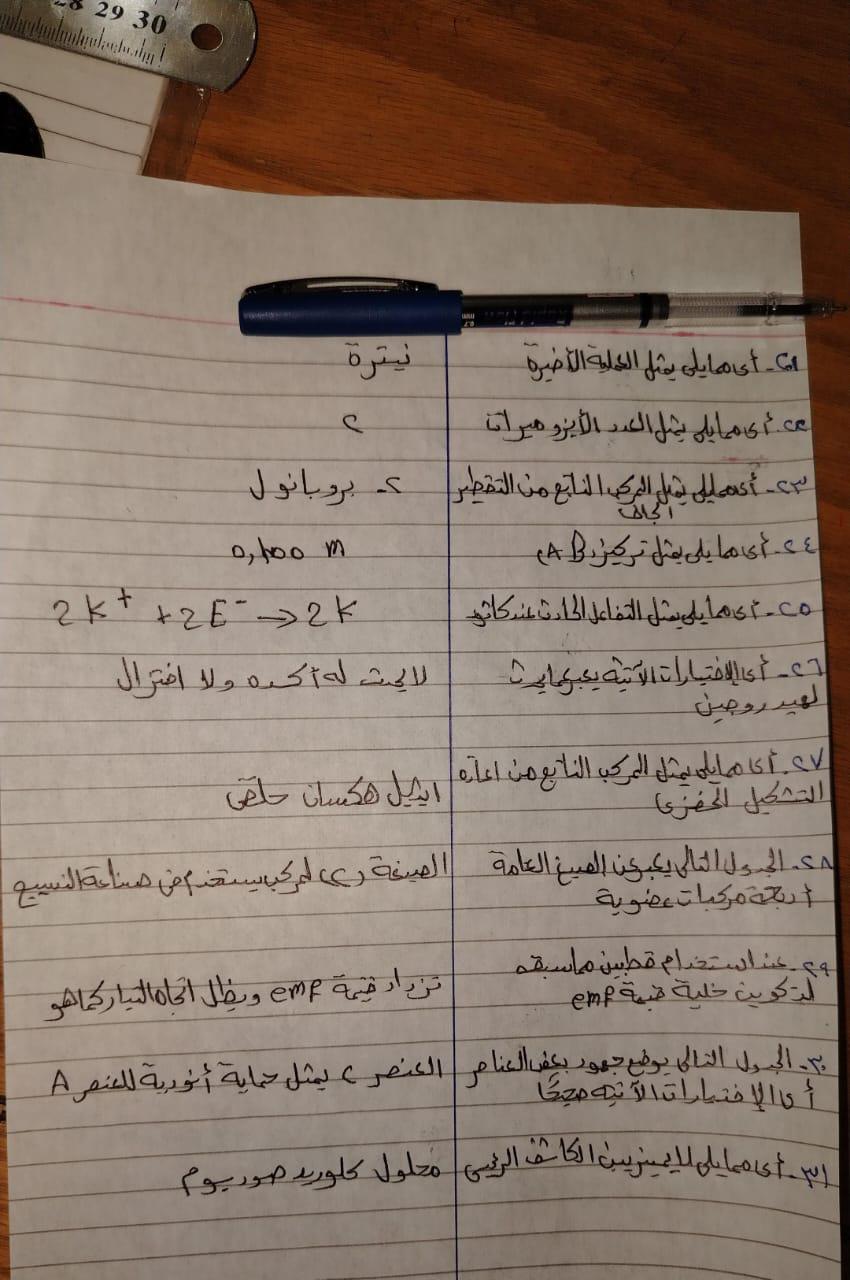 28 29 30
0.7 mm
٢١- أى مما يلى يمثل العملية الأخيرة
نيترة
٢٢- أى مما يلى يمثل العدد الأيزوميرات
٢
٢٣- أى مما يلى يمثل المركب الناتج من التقطير
الجاف
٢- بروبانول
٢٤- أى مما يلى يمثل تركيز A B
0,100 m
٢٥- أى مما يلى يمثل التفاعل الحادث عند كاثود
2K⁺ + 2E⁻ → 2K
٢٦- أى الإختيارات الآتية يعبر عما يحدث
لهيدروجين
لا يحدث له أكسده ولا اختزال
٢٧- أى مما يلى يمثل المركب الناتج من اعاده
التشكيل المحفزى
ايثيل هكسان حلقى
٢٨- الجدول التالى يعبر عن الصيغ العامة
أربعة مركبات عضوية
الصيغة (٢) لمركب يستخدم فى صناعة النسيج
٢٩- عند استخدام قطبين مما سبق
لتكوين خلية قيمة emf
تزداد قيمة emf ويظل اتجاه التيار كما هو
٣٠- الجدول التالى يوضح جهود بعض العناصر
أى الإختيارات الآتيه صحيحًا
العنصر C يمثل حماية أنودية للعنصر A
٣١- أى مما يلى لا يميز بين الكاشف الرئيسى
محلول كلوريد صوديوم